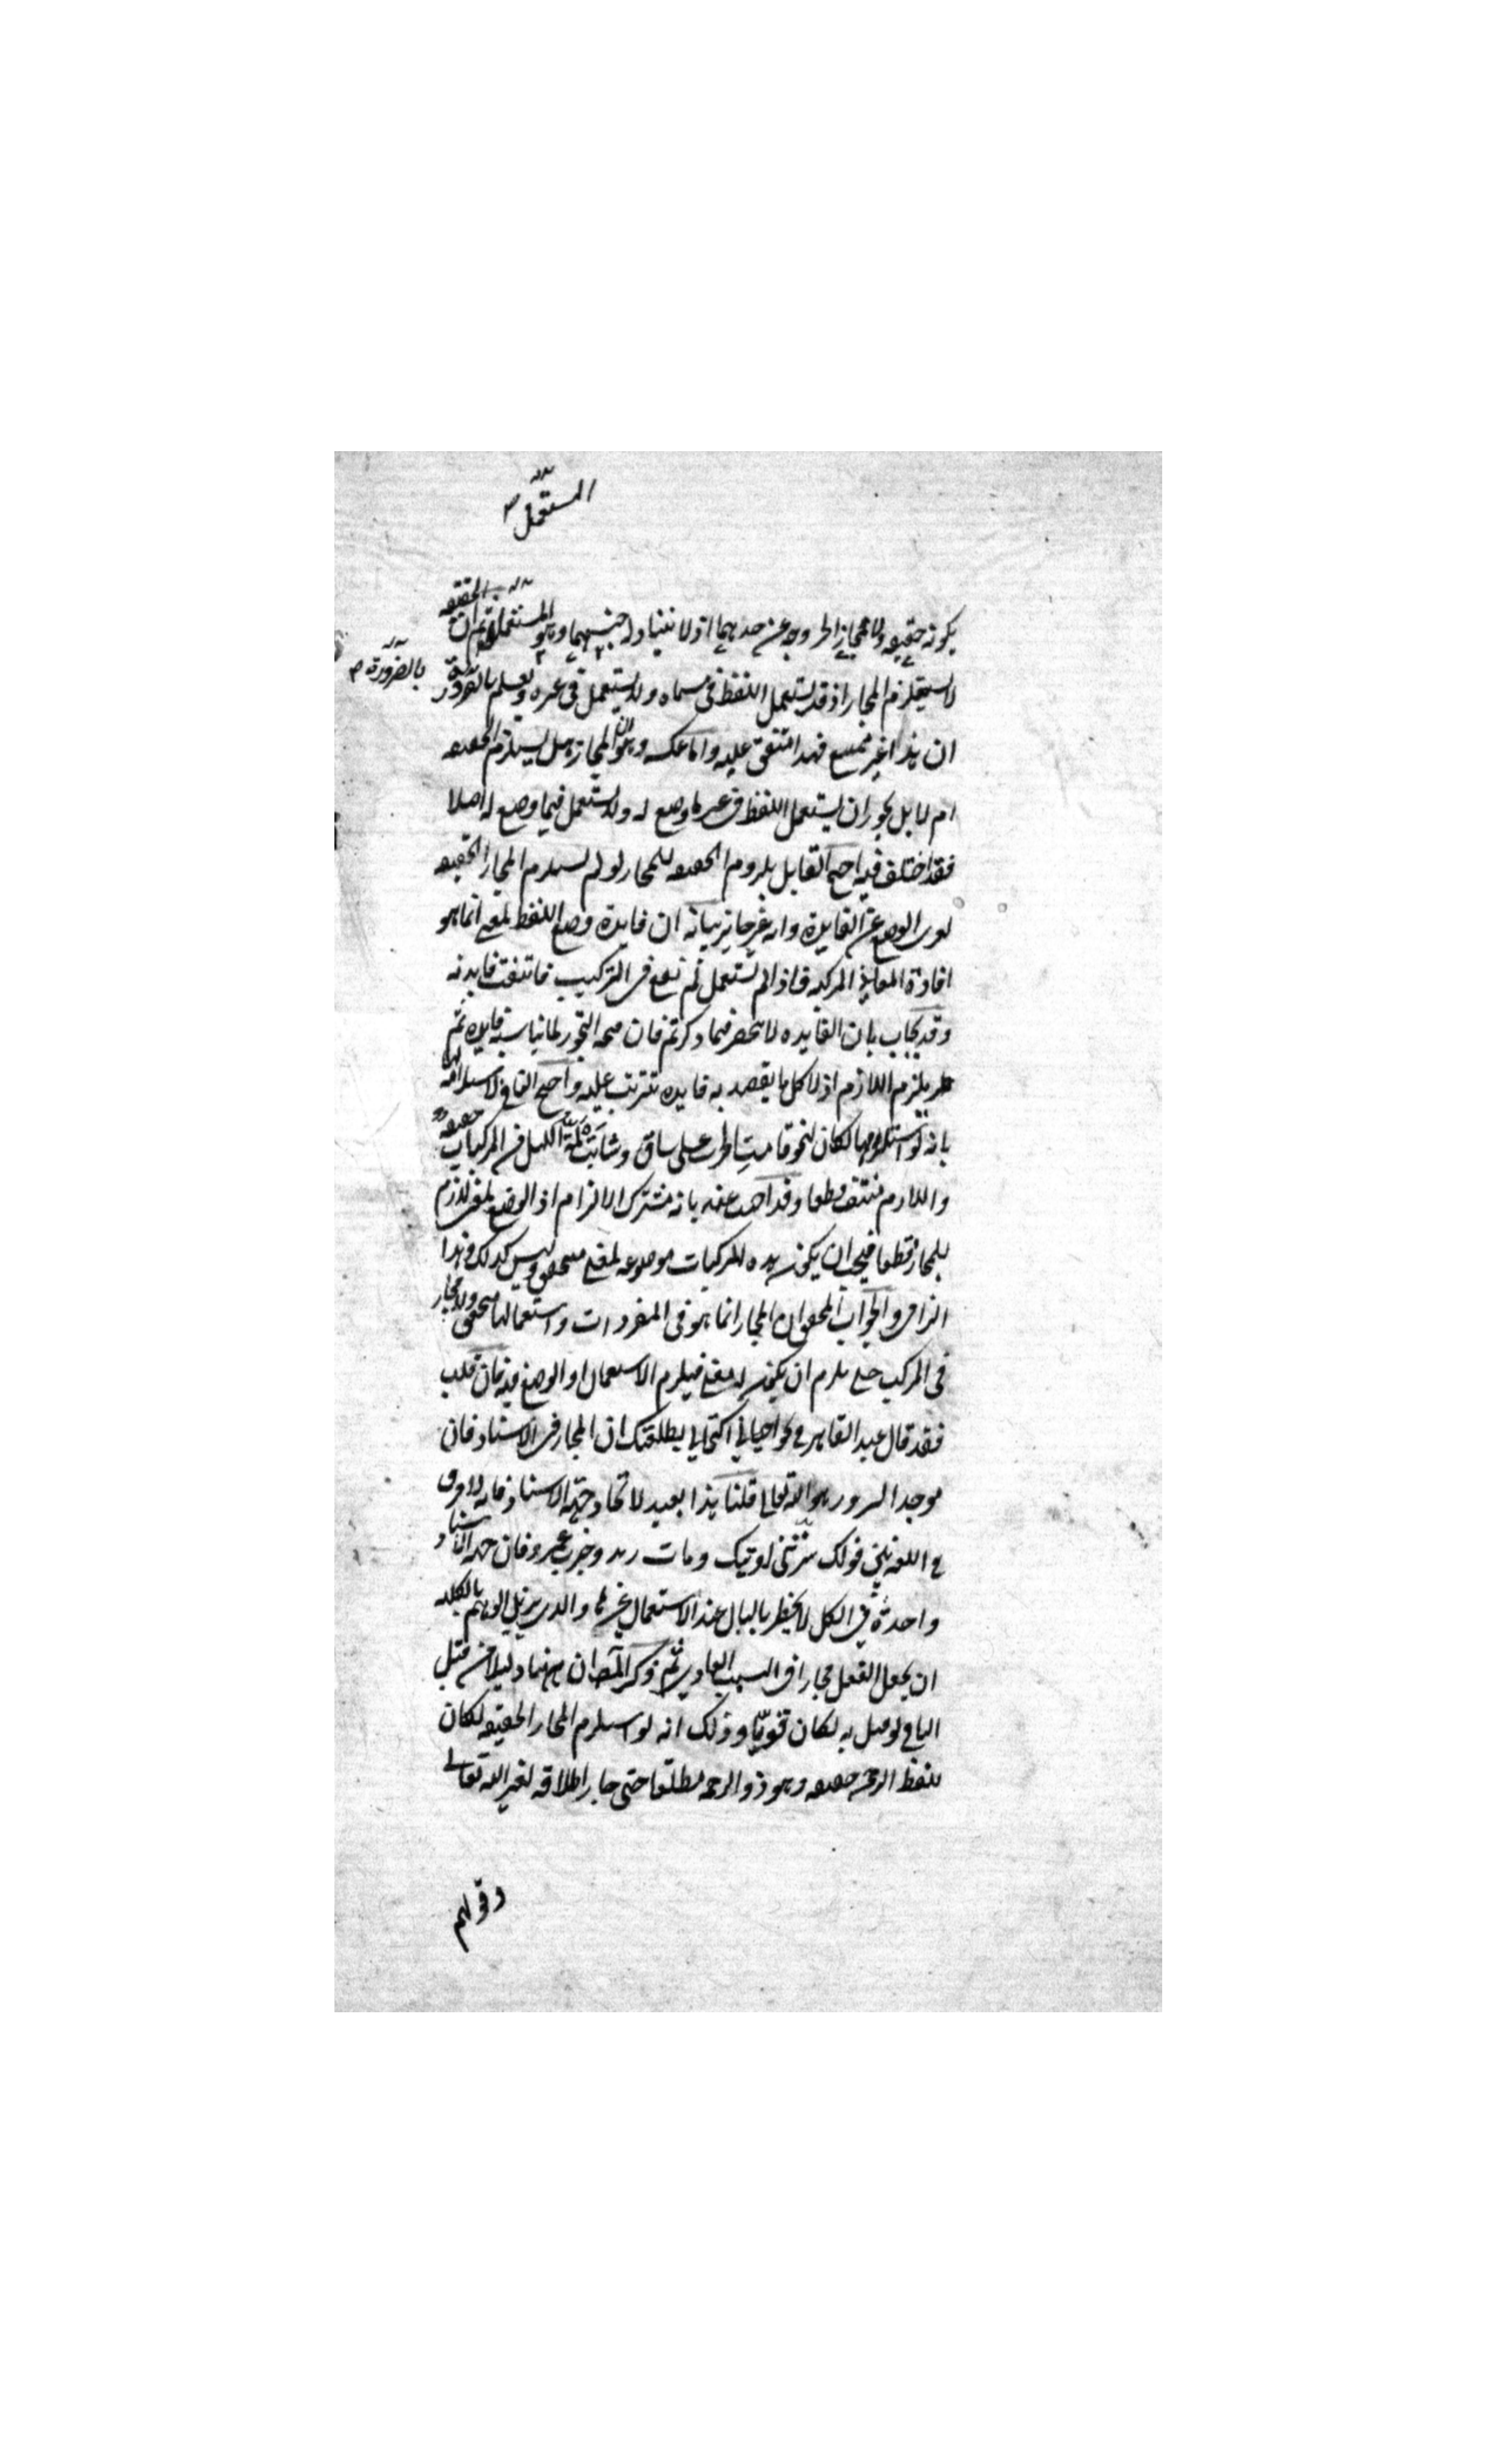 المستعمل
يكون حقيقة ولا مجازا لخروجه عن حدهما اذ لا يتناوله جنسهما وهو المستعمل ثم ان الحقيقة
بالضرورة
لا يستلزم المجاز اذ قد يستعمل اللفظ في مسماه ولا يستعمل في غيره ويعلم بالضرورة
ان هذا غير ممتنع فهذا متفق عليه واما عكسه وهو ان المجاز هل يستلزم الحقيقة
ام لا بل يجوز ان يستعمل اللفظ في غير ما وضع له ولا يستعمل فيما وضع له اصلا
فقد اختلف فيه احتج القايل بلزوم الحقيقة للمجاز لو لم يستلزم المجاز الحقيقة
لعرى الوضع عن الفايدة وانه غير جايز بيانه ان فايدة وضع اللفظ لمعنى انما هو
افادة المعاني المركبة فاذا لم يستعمل لم يقع في التركيب فانتفت فايدته
وقد يجاب بان الفايدة لا تنحصر فيما ذكرتم فان صحة التجوز لما يناسبه فايدة ثم
يلزم اللازم اذ لا كل ما يقصد به فايدة تترتب عليه واحتج النافي لاستلزامه
بانه لو استلزمها لكان لنحو قامت الحرب على ساق وشابت لمة الليل من المركبات حقيقة
واللازم منتف قطعا وقد اجيب عنه بانه مشترك الالزام اذ الوضع لمعنى لازم
للمجاز قطعا فيجب ان يكون هذه المركبات موضوعة لمعنى متحقق وليس كذلك وهذا
الزامي والجواب المحقق ان المجاز انما هو في المفردات واستعمالها متحقق ولا مجاز
في المركب حتى يلزم ان يكون له معنى فيلزم الاستعمال او الوضع فيه فان قلت
فقد قال عبد القاهر في نحو احياني اكتحالي بطلعتك ان المجاز في الاسناد فان
موجد السرور هو الله تعالى قلنا هذا بعيد لاتحاد جهة الاسناد فانه لا فرق
في اللغة بين قولك سرتني رؤيتك ومات زيد وضرب عمرو فان جهة الاسناد
واحدة في الكل لا يخطر بالبال عند الاستعمال غيرها والذي يزيل الوهم بالكلية
ان يجعل الفعل مجازا في السبب العادي ثم ذكر المصـ ان ههنا دليلا من قبل
النافي لو قيل به لكان قويا وذلك انه لو استلزم المجاز الحقيقة لكان
للفظ الرحمن حقيقة وهو ذو الرحمة مطلقا حتى جاز اطلاقه لغير الله تعالى
وقولهم